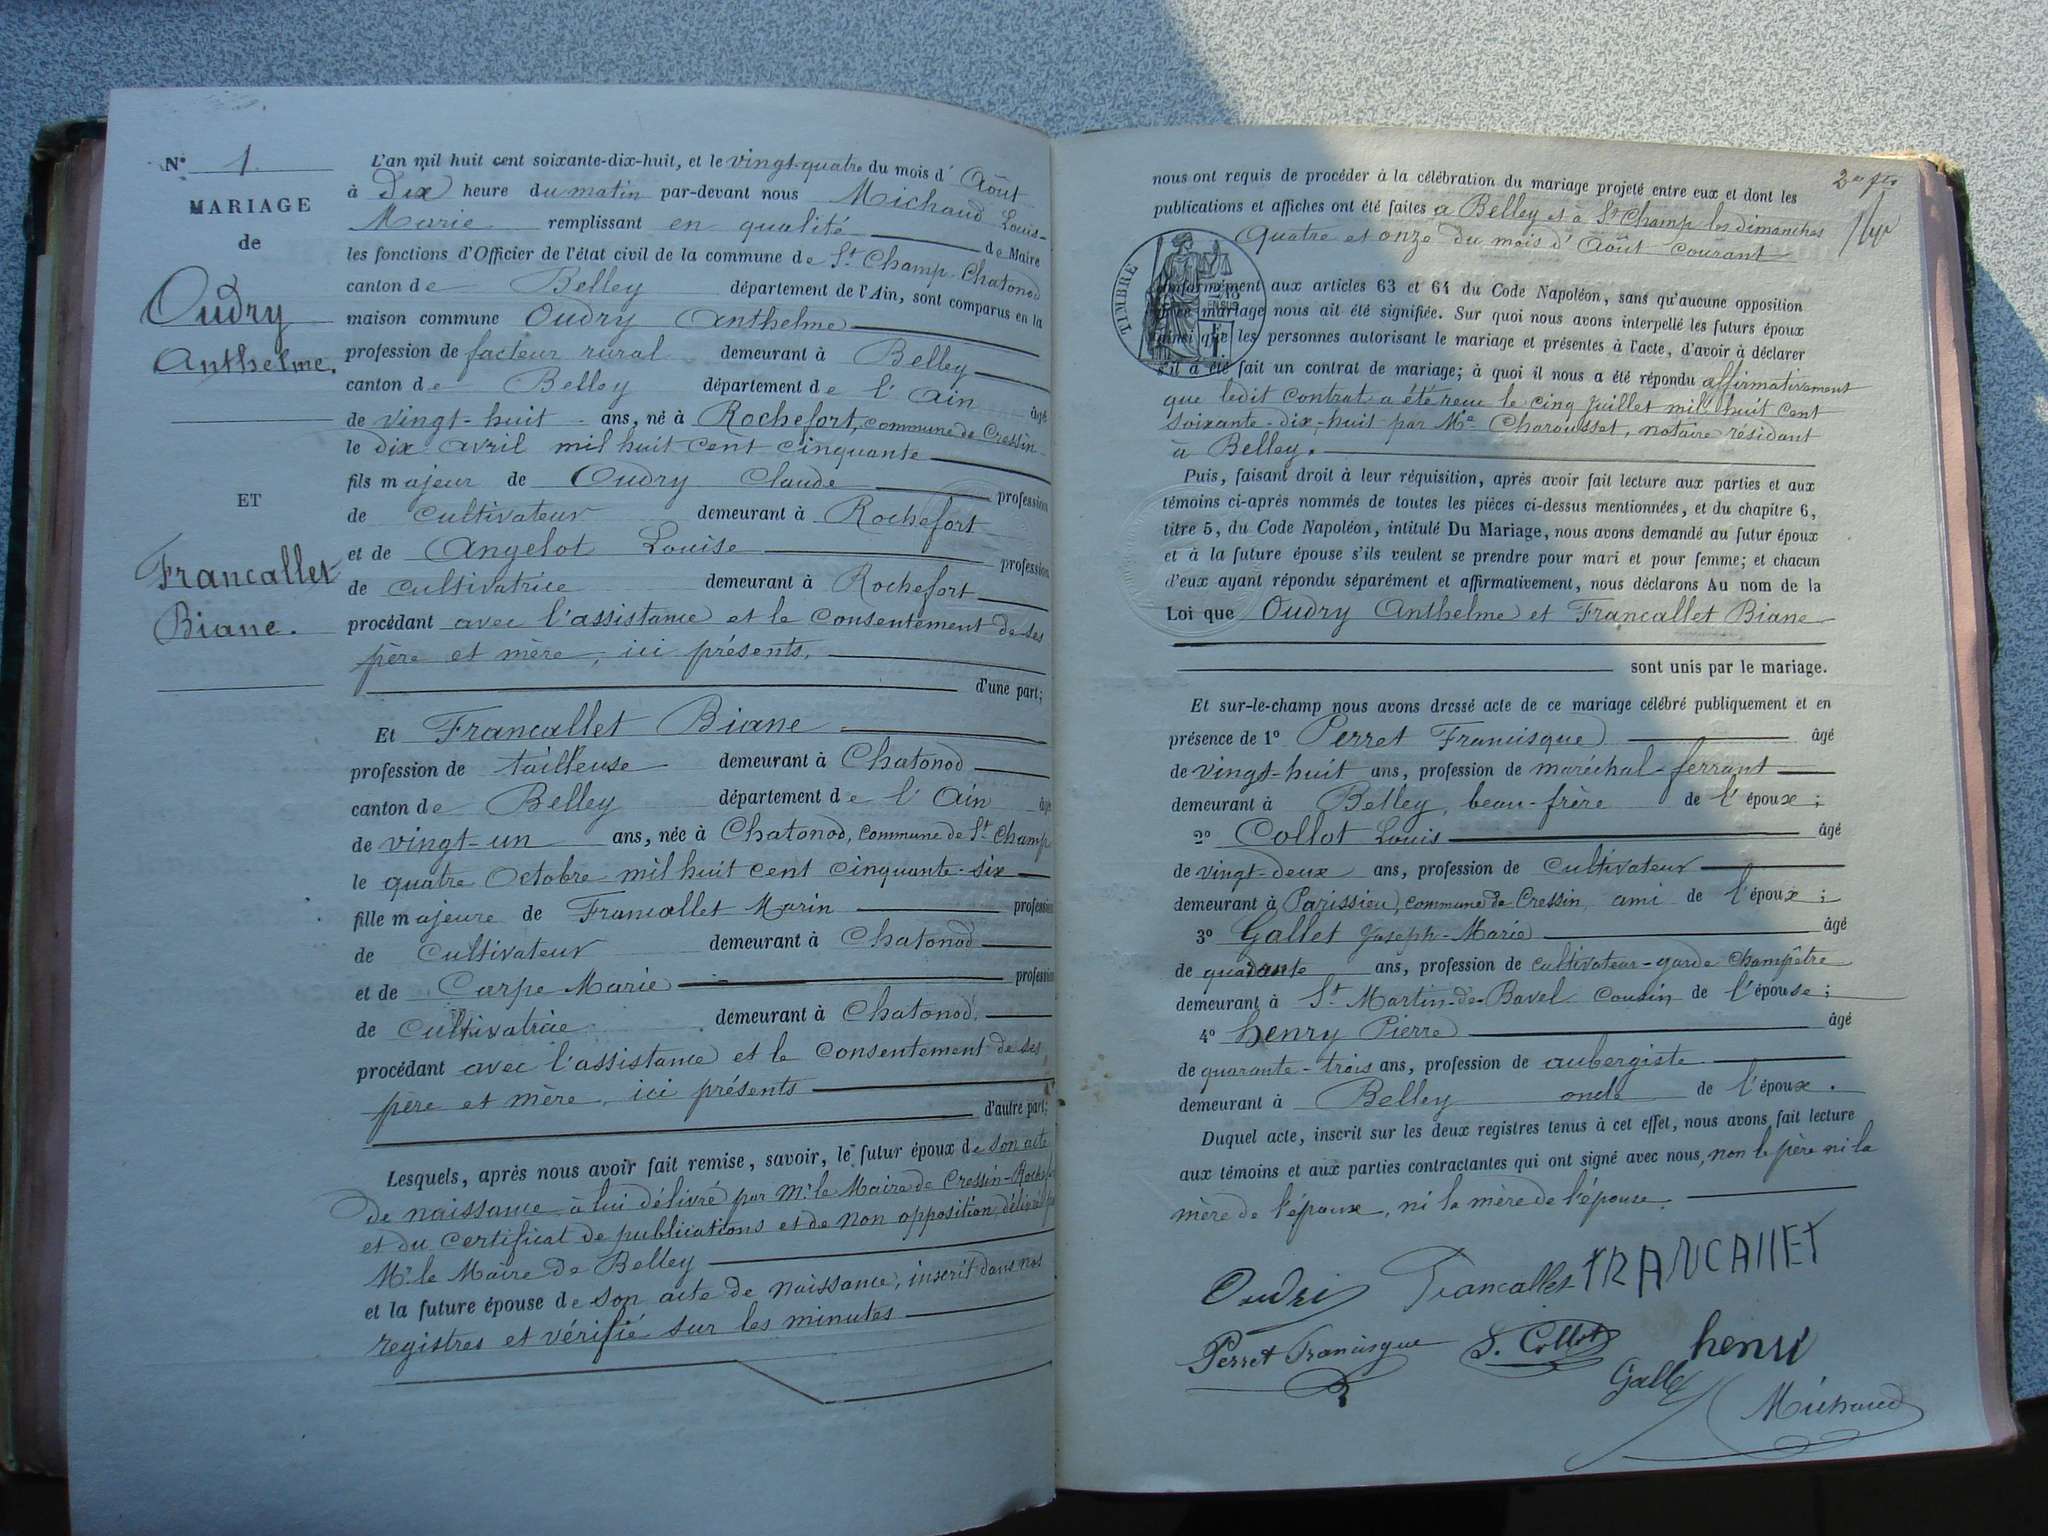 N° 1.
MARIAGE
de
Oudry
Anthelme.
ET
Francallet
Biane.
L'an mil huit cent soixante-dix-huit, et le vingt-quatre du mois d' Août
à Dix heure du matin par-devant nous Michaud Louis-
Marie remplissant en qualité de Maire
les fonctions d'Officier de l'état civil de la commune de St Champ-Chatonod
canton de Belley département de l'Ain, sont comparus en la
maison commune Oudry Anthelme
profession de facteur rural demeurant à Belley
canton de Belley département de l'Ain âgé
de vingt-huit ans, né à Rochefort, commune de Cressin
le dix avril mil huit cent cinquante
fils majeur de Oudry Claude profession
de cultivateur demeurant à Rochefort
et de Angelot Louise profession
de cultivatrice demeurant à Rochefort
procédant avec l'assistance et le consentement de ses
père et mère, ici présents,
d'une part;
Et Francallet Biane
profession de tailleuse demeurant à Chatonod
canton de Belley département de l'Ain âgée
de vingt-un ans, née à Chatonod, commune de St Champ
le quatre Octobre mil huit cent cinquante-six
fille majeure de Francallet Marin profession
de cultivateur demeurant à Chatonod
et de Carpe Marie profession
de cultivatrice demeurant à Chatonod,
procédant avec l'assistance et le consentement de ses
père et mère, ici présents
d'autre part;
Lesquels, après nous avoir fait remise, savoir, le futur époux de son acte
de naissance à lui délivré par Mr le Maire de Cressin-Rochefort
et du certificat de publications et de non opposition, délivré par
Mr le Maire de Belley
et la future épouse de son acte de naissance, inscrit dans nos
registres et vérifié sur les minutes
nous ont requis de procéder à la célébration du mariage projeté entre eux et dont les
publications et affiches ont été faites à Belley et à St Champ les dimanches
quatre et onze du mois d'Août courant
TIMBRE
conformément aux articles 63 et 64 du Code Napoléon, sans qu'aucune opposition
audit mariage nous ait été signifiée. Sur quoi nous avons interpellé les futurs époux
ainsi que les personnes autorisant le mariage et présentes à l'acte, d'avoir à déclarer
s'il a été fait un contrat de mariage; à quoi il nous a été répondu affirmativement
que ledit contrat a été reçu le cinq Juillet mil huit cent
soixante-dix-huit par Me Charousset, notaire résidant
à Belley.
Puis, faisant droit à leur réquisition, après avoir fait lecture aux parties et aux
témoins ci-après nommés de toutes les pièces ci-dessus mentionnées, et du chapitre 6,
titre 5, du Code Napoléon, intitulé Du Mariage, nous avons demandé au futur époux
et à la future épouse s'ils veulent se prendre pour mari et pour femme; et chacun
d'eux ayant répondu séparément et affirmativement, nous déclarons Au nom de la
Loi que Oudry Anthelme et Francallet Biane
sont unis par le mariage.
Et sur-le-champ nous avons dressé acte de ce mariage célébré publiquement et en
présence de 1° Perret Francisque âgé
de vingt-huit ans, profession de maréchal-ferrant
demeurant à Belley, beau-frère de l'époux;
2° Collot Louis âgé
de vingt-deux ans, profession de cultivateur
demeurant à Parissieu, commune de Cressin, ami de l'époux;
3° Gallet Joseph-Marie âgé
de quarante ans, profession de cultivateur-garde champêtre
demeurant à St Martin-de-Bavel cousin de l'épouse;
4° henry Pierre âgé
de quarante-trois ans, profession de aubergiste
demeurant à Belley oncle de l'époux.
Duquel acte, inscrit sur les deux registres tenus à cet effet, nous avons fait lecture
aux témoins et aux parties contractantes qui ont signé avec nous, non le père ni la
mère de l'époux, ni la mère de l'épouse.
Oudri Francallet FRANCAllET
Perret Francisque L. Collot henri
Gallet Michaud